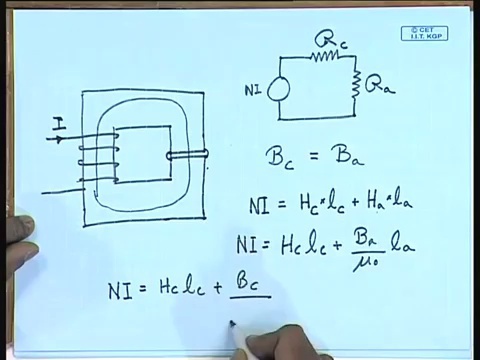 © CET
I.I.T. KGP
R_c
NI
R_a
I
B_c = B_a
NI = H_c * l_c + H_a * l_a
NI = H_c l_c + B_a/μ_0 l_a
NI = H_c l_c + B_c